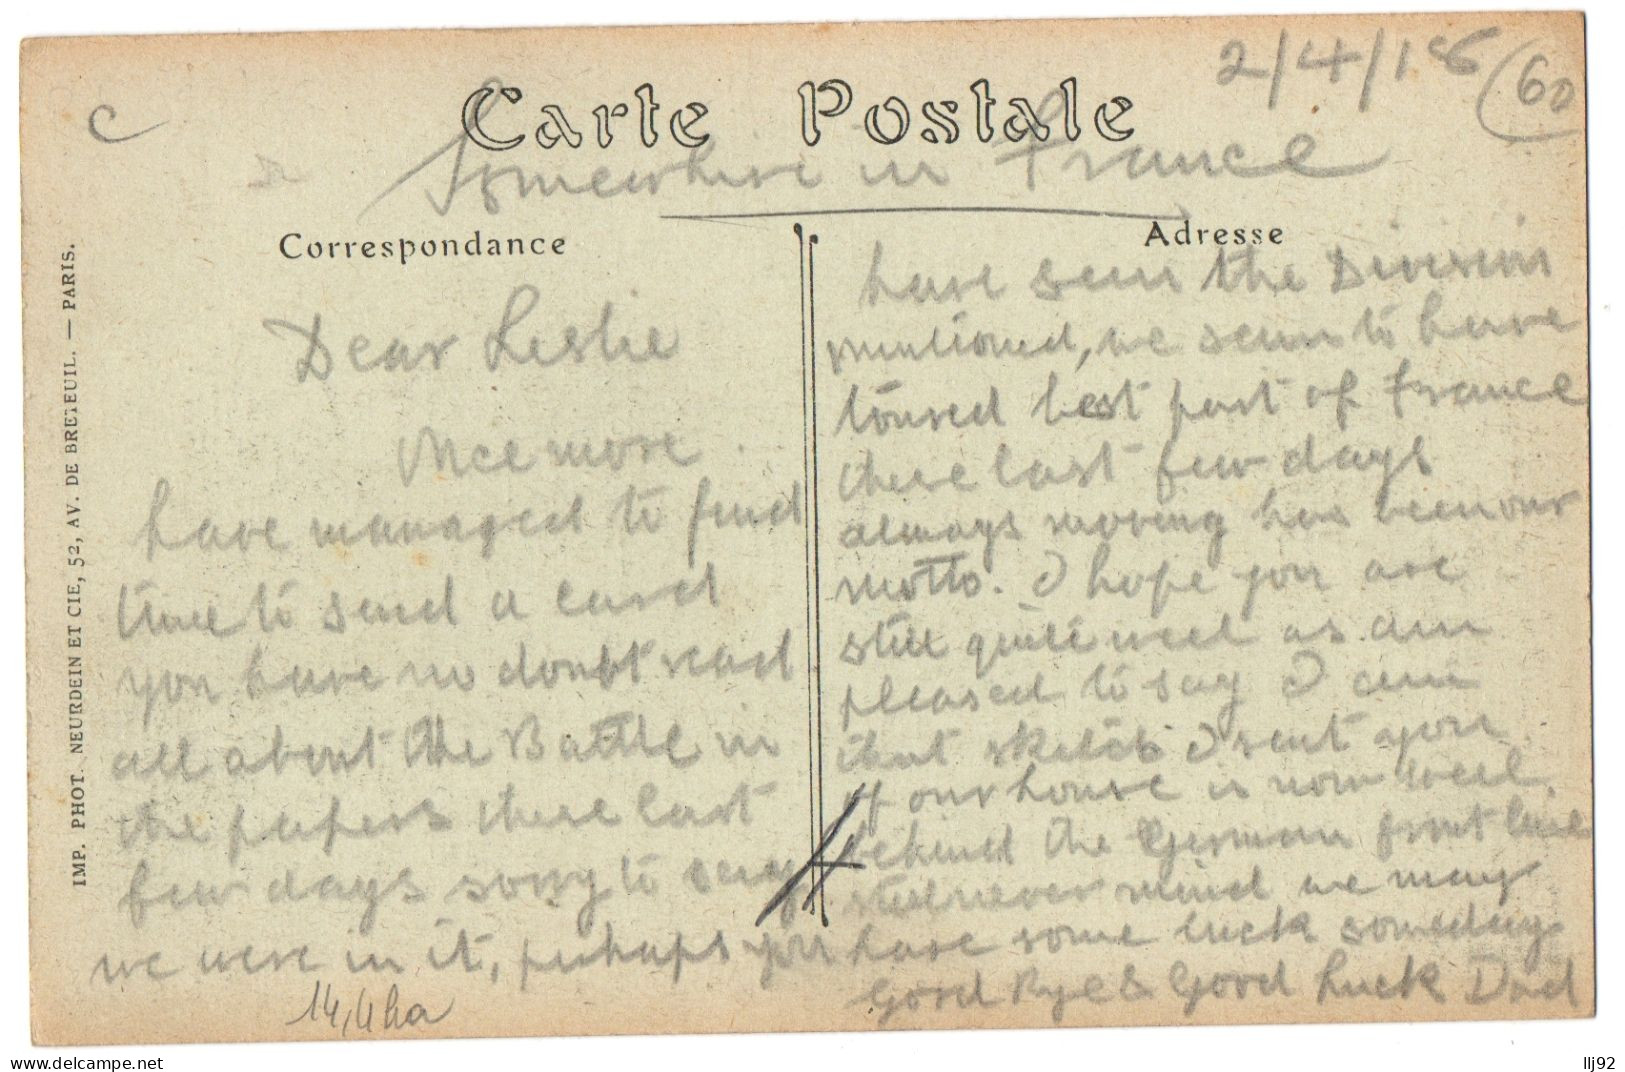 2/4/18
(60
C
Carte Postale
Somewhere in France
Correspondance
Adresse
IMP. PHOT. NEURDEIN ET CIE, 52, AV. DE BRETEUIL. — PARIS.
Dear Leslie
Once more
have managed to find
time to send a card
you have no doubt read
all about the Battle in
the papers these last
few days sorry to say
we were in it, perhaps you
14,4ha
have seen the Division
mentioned, we seem to have
toured best part of France
these last few days
always moving has been our
motto. I hope you are
still quite well as am
pleased to say I am
that sketch I sent you
of our house is now well
behind the German front line
still never mind we may
have some luck someday.
Good Bye & Good Luck Dad
llj92
delcampe.net